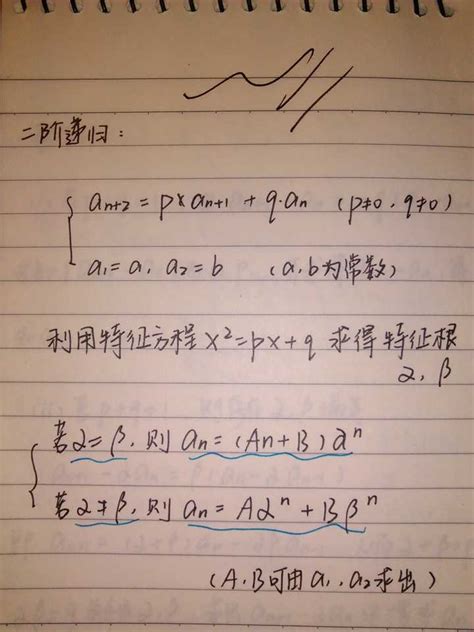 二阶递归:
a_{n+2} = p×a_{n+1} + q·a_n (p≠0, q≠0)
a_1 = a, a_2 = b (a,b为常数)
利用特征方程 x^2 = px + q 求得特征根
α, β
若α=β, 则 a_n = (An+B)α^n
若α≠β, 则 a_n = Aα^n + Bβ^n
(A,B可由a_1, a_2求出)